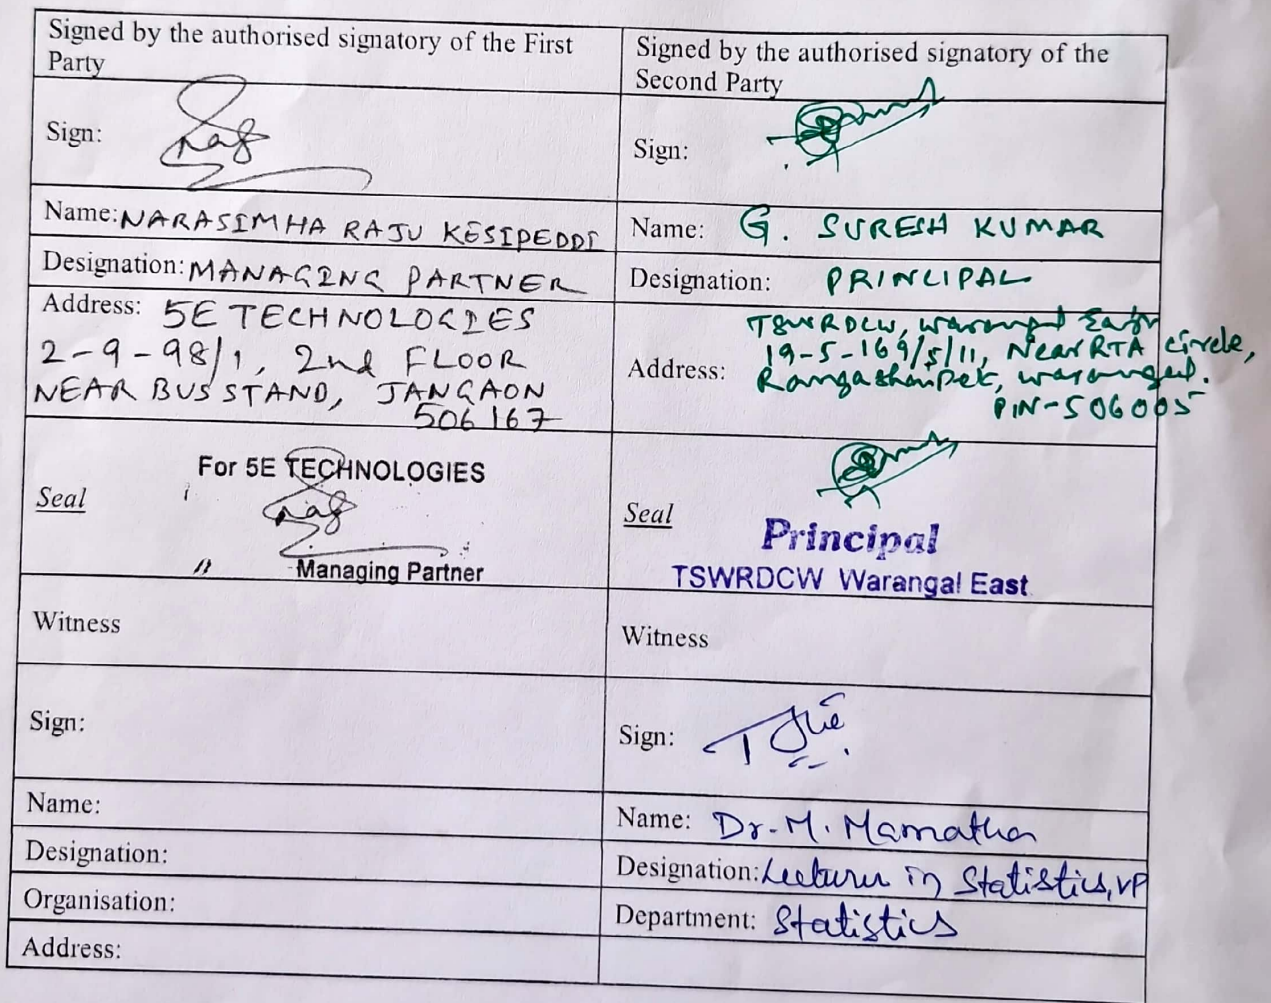 Signed by the authorised signatory of the First
Party
Signed by the authorised signatory of the
Second Party
Sign:
Sign:
Name: NARASIMHA RAJU KESIPEDDI
Name: G. SURESH KUMAR
Designation: MANAGING PARTNER
Designation: PRINCIPAL
Address: 5E TECHNOLOGIES
2-9-98/1, 2nd FLOOR
NEAR BUS STAND, JANGAON
506167
Address: TSWRDCW, Warangal East
19-5-169/5/11, Near RTA Circle,
Rangashaipet, Warangal.
PIN-506005
Seal
For 5E TECHNOLOGIES
Managing Partner
Seal
Principal
TSWRDCW Warangal East
Witness
Witness
Sign:
Sign:
Name:
Name: Dr. M. Mamatha
Designation:
Designation: Lecturer in Statistics, VP
Organisation:
Department: Statistics
Address: